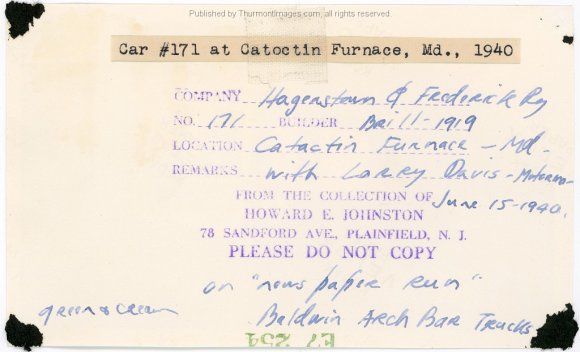 Published by ThurmontImages.com, all rights reserved.
Car #171 at Catoctin Furnace, Md., 1940
COMPANY Hagerstown & Frederick Ry
NO. 171 BUILDER Brill-1919
LOCATION Catactin Furnace - Md.
REMARKS with Larry Davis - Motorman
FROM THE COLLECTION OF June 15-1940.
HOWARD E. JOHNSTON
78 SANDFORD AVE., PLAINFIELD, N. J.
PLEASE DO NOT COPY
on "news paper run"
green & cream Baldwin Arch Bar Trucks